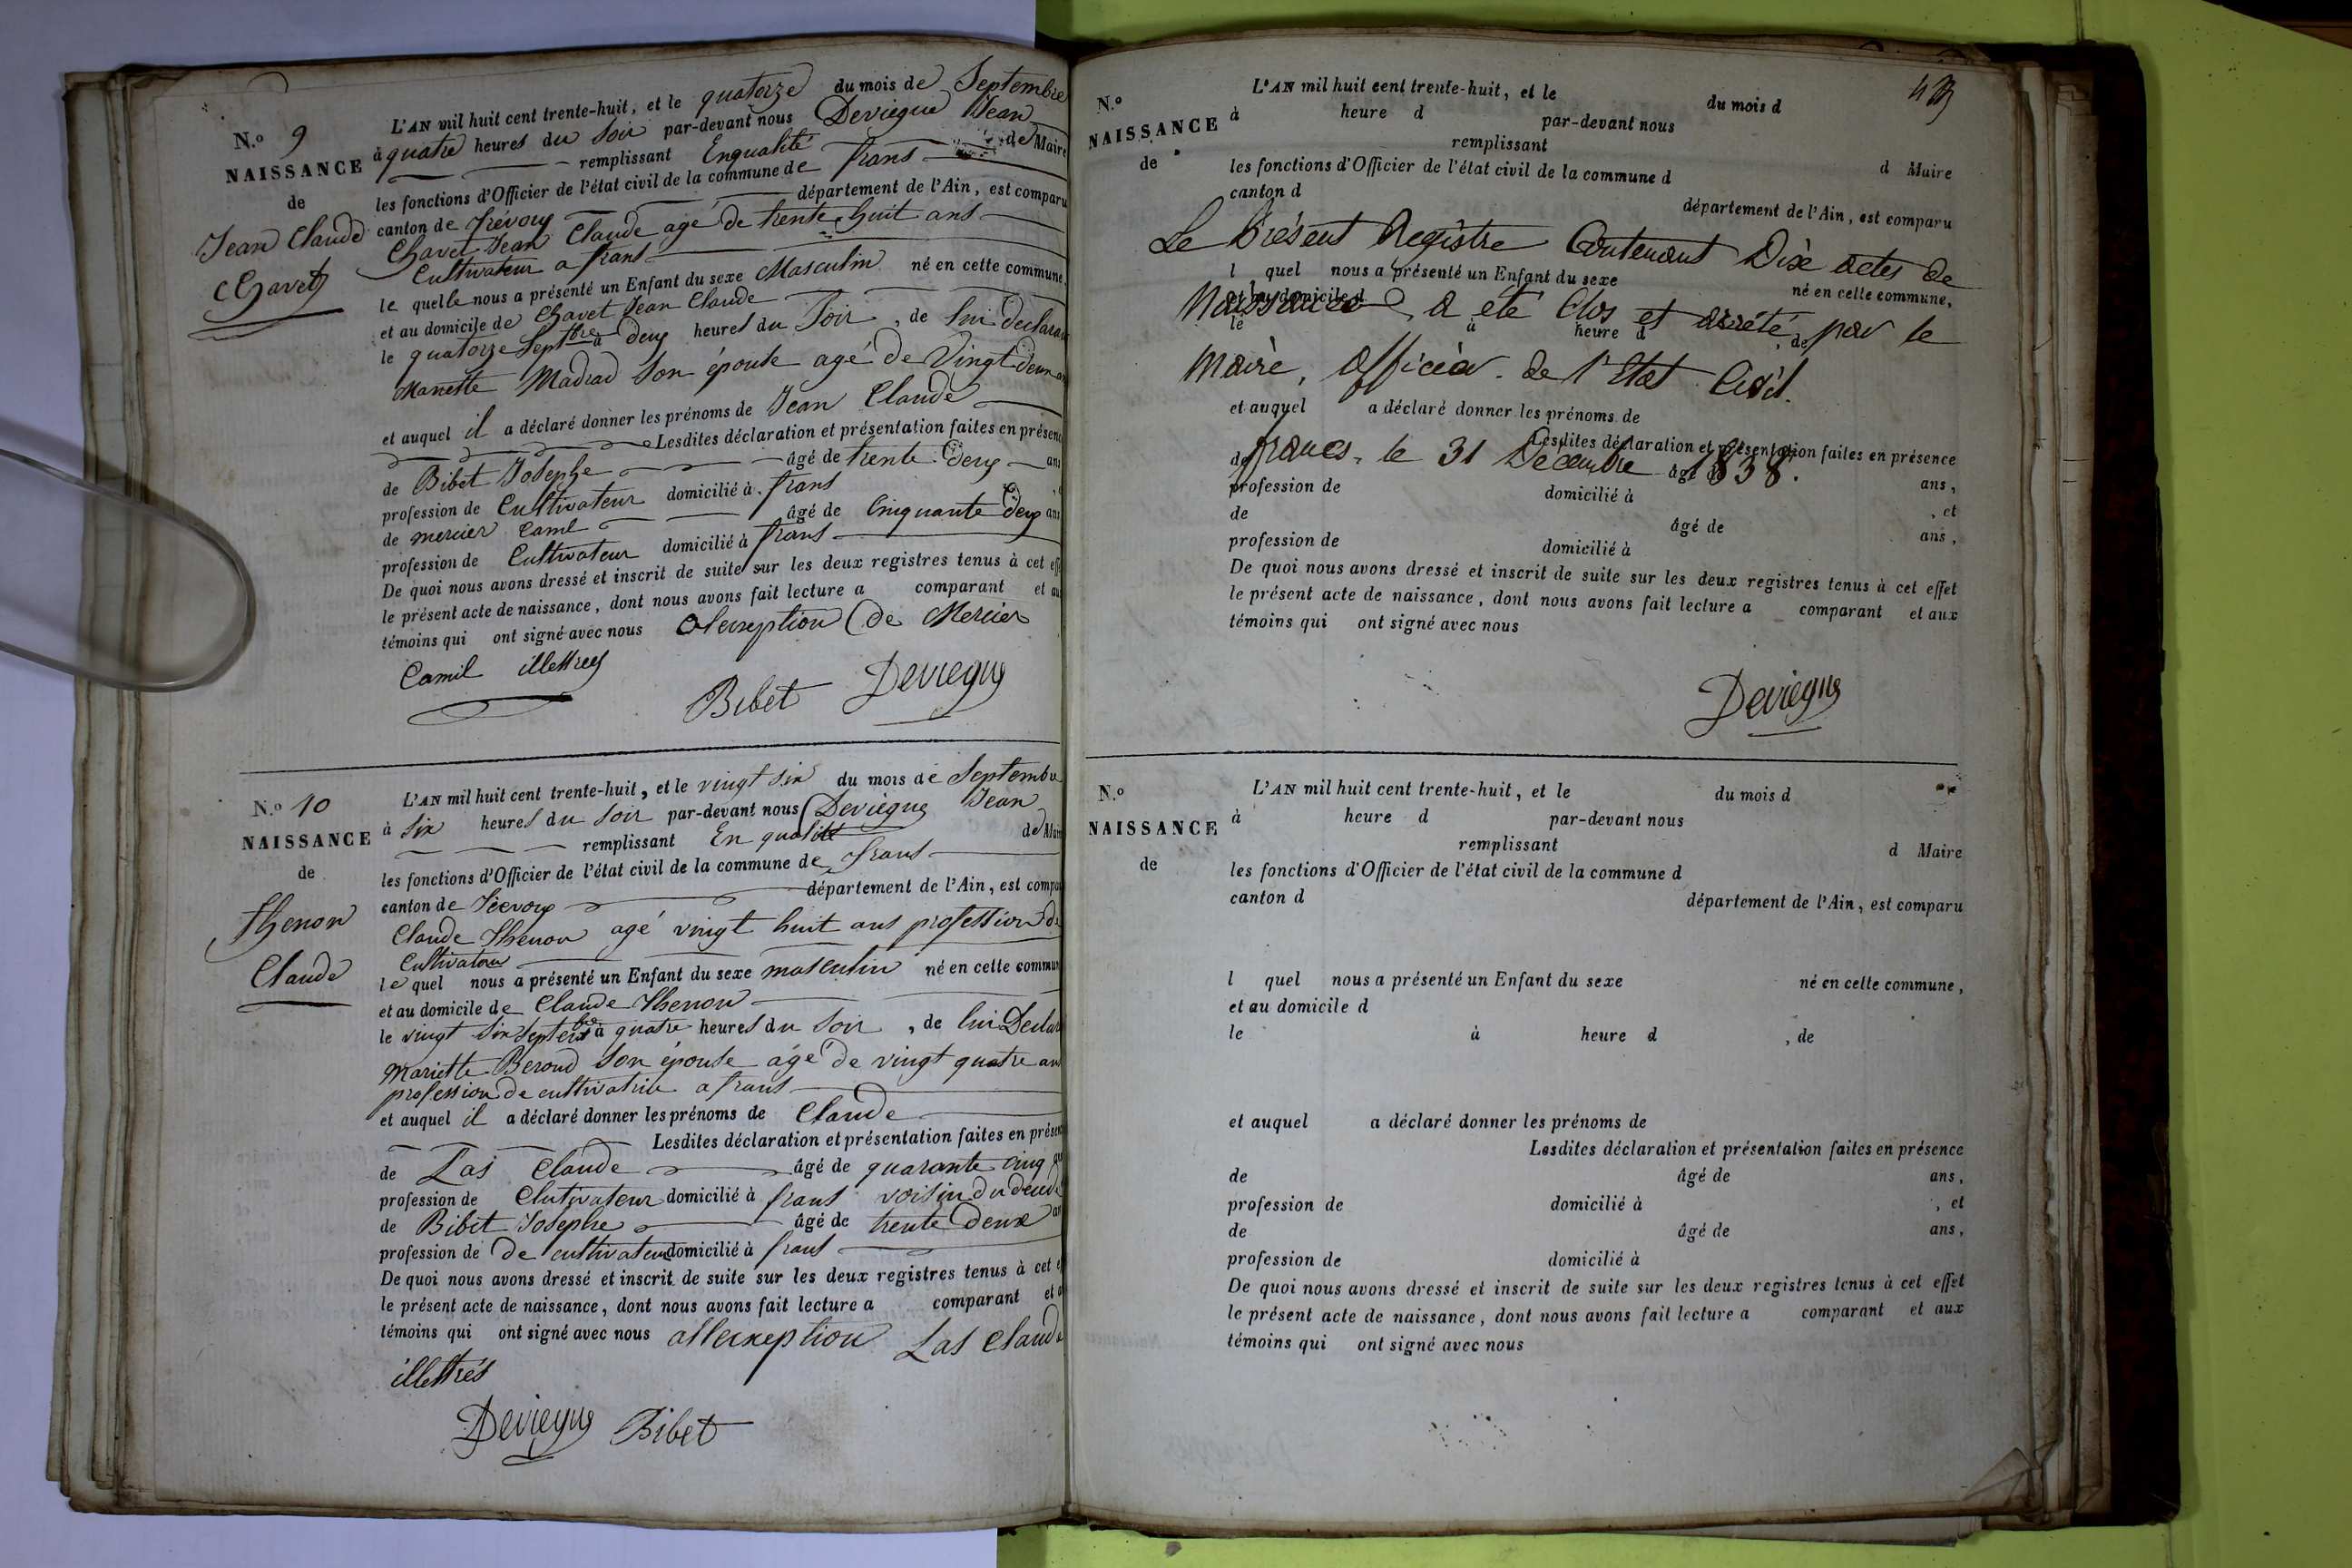 N.o 9
NAISSANCE
de
Jean Claude
Chavet
L'AN mil huit cent trente-huit, et le quatorze du mois de Septembre
à quatre heures du Soir par-devant nous Deviegue Jean
remplissant Enqualité de Maire
les fonctions d'Officier de l'état civil de la commune de frans
canton de trévoux département de l'Ain, est comparu
Chavet Jean Claude agé de trente huit ans
Cultivateur a frans
le quelle nous a présenté un Enfant du sexe Masculin né en cette commune,
et au domicile de Chavet Jean Claude
le quatorze Septbre à deux heures du Soir, de lui declarant
Mariette Madrad son épouse agé de Vingt deux ans
et auquel il a déclaré donner les prénoms de Jean Claude
Lesdites déclaration et présentation faites en présence
de Bibet Josephe âgé de trente deux ans
profession de Cultivateur domicilié à frans
de mercier Camil âgé de Cinquante deux ans
profession de Cultivateur domicilié à frans
De quoi nous avons dressé et inscrit de suite sur les deux registres tenus à cet effet
le présent acte de naissance, dont nous avons fait lecture a comparant et aux
témoins qui ont signé avec nous alexseption de Mercier
Camil illettrees
Bibet Deviegue
N.o 10
NAISSANCE
de
Thenon
Claude
L'AN mil huit cent trente-huit, et le vingt six du mois de Septembre
à six heures du soir par-devant nous Deviegue Jean
remplissant En qualité de Maire
les fonctions d'Officier de l'état civil de la commune de frans
canton de Trevoux département de l'Ain, est comparu
Claude Thenon agé vingt huit ans profession de
Cultivateur
le quel nous a présenté un Enfant du sexe masculin né en cette commune
et au domicile de Claude Thenon
le vingt six septembre à quatre heures du soir, de lui Declar
Mariette Beroud son épouse agé de vingt quatre ans
profession de cultivatrice a frans
et auquel il a déclaré donner les prénoms de Claude
Lesdites déclaration et présentation faites en présence
de Las Claude âgé de quarante cinq
profession de Clutivateur domicilié à frans voisin du
de Bibet Josephe âgé de trente deux ans
profession de de cultivateur domicilié à frans
De quoi nous avons dressé et inscrit de suite sur les deux registres tenus à cet
le présent acte de naissance, dont nous avons fait lecture a comparant et
témoins qui ont signé avec nous allexxeption Las Claude
illettrés
Deviegue Bibet
N.o
NAISSANCE
de
L'AN mil huit cent trente-huit, et le du mois d
à heure d par-devant nous
remplissant d Maire
les fonctions d'Officier de l'état civil de la commune d
canton d département de l'Ain, est comparu
Le Présent Registre Contenant Dix actes de
l quel nous a présenté un Enfant du sexe né en cette commune,
et au domicile d
Naissances, a eté Clos et arrété, par le
le à heure d , de
Maire, Officier de l'Etat Civil.
et auquel a déclaré donner les prénoms de
Lesdites déclaration et présentation faites en présence
francs, le 31 Décembre 1838.
de âgé de ans,
profession de domicilié à , et
de âgé de ans,
profession de domicilié à
De quoi nous avons dressé et inscrit de suite sur les deux registres tenus à cet effet
le présent acte de naissance, dont nous avons fait lecture a comparant et aux
témoins qui ont signé avec nous
Deviegue
N.o
NAISSANCE
de
L'AN mil huit cent trente-huit, et le du mois d
à heure d par-devant nous
remplissant d Maire
les fonctions d'Officier de l'état civil de la commune d
canton d département de l'Ain, est comparu
l quel nous a présenté un Enfant du sexe né en cette commune,
et au domicile d
le à heure d , de
et auquel a déclaré donner les prénoms de
Lesdites déclaration et présentation faites en présence
de âgé de ans,
profession de domicilié à , et
de âgé de ans,
profession de domicilié à
De quoi nous avons dressé et inscrit de suite sur les deux registres tenus à cet effet
le présent acte de naissance, dont nous avons fait lecture a comparant et aux
témoins qui ont signé avec nous